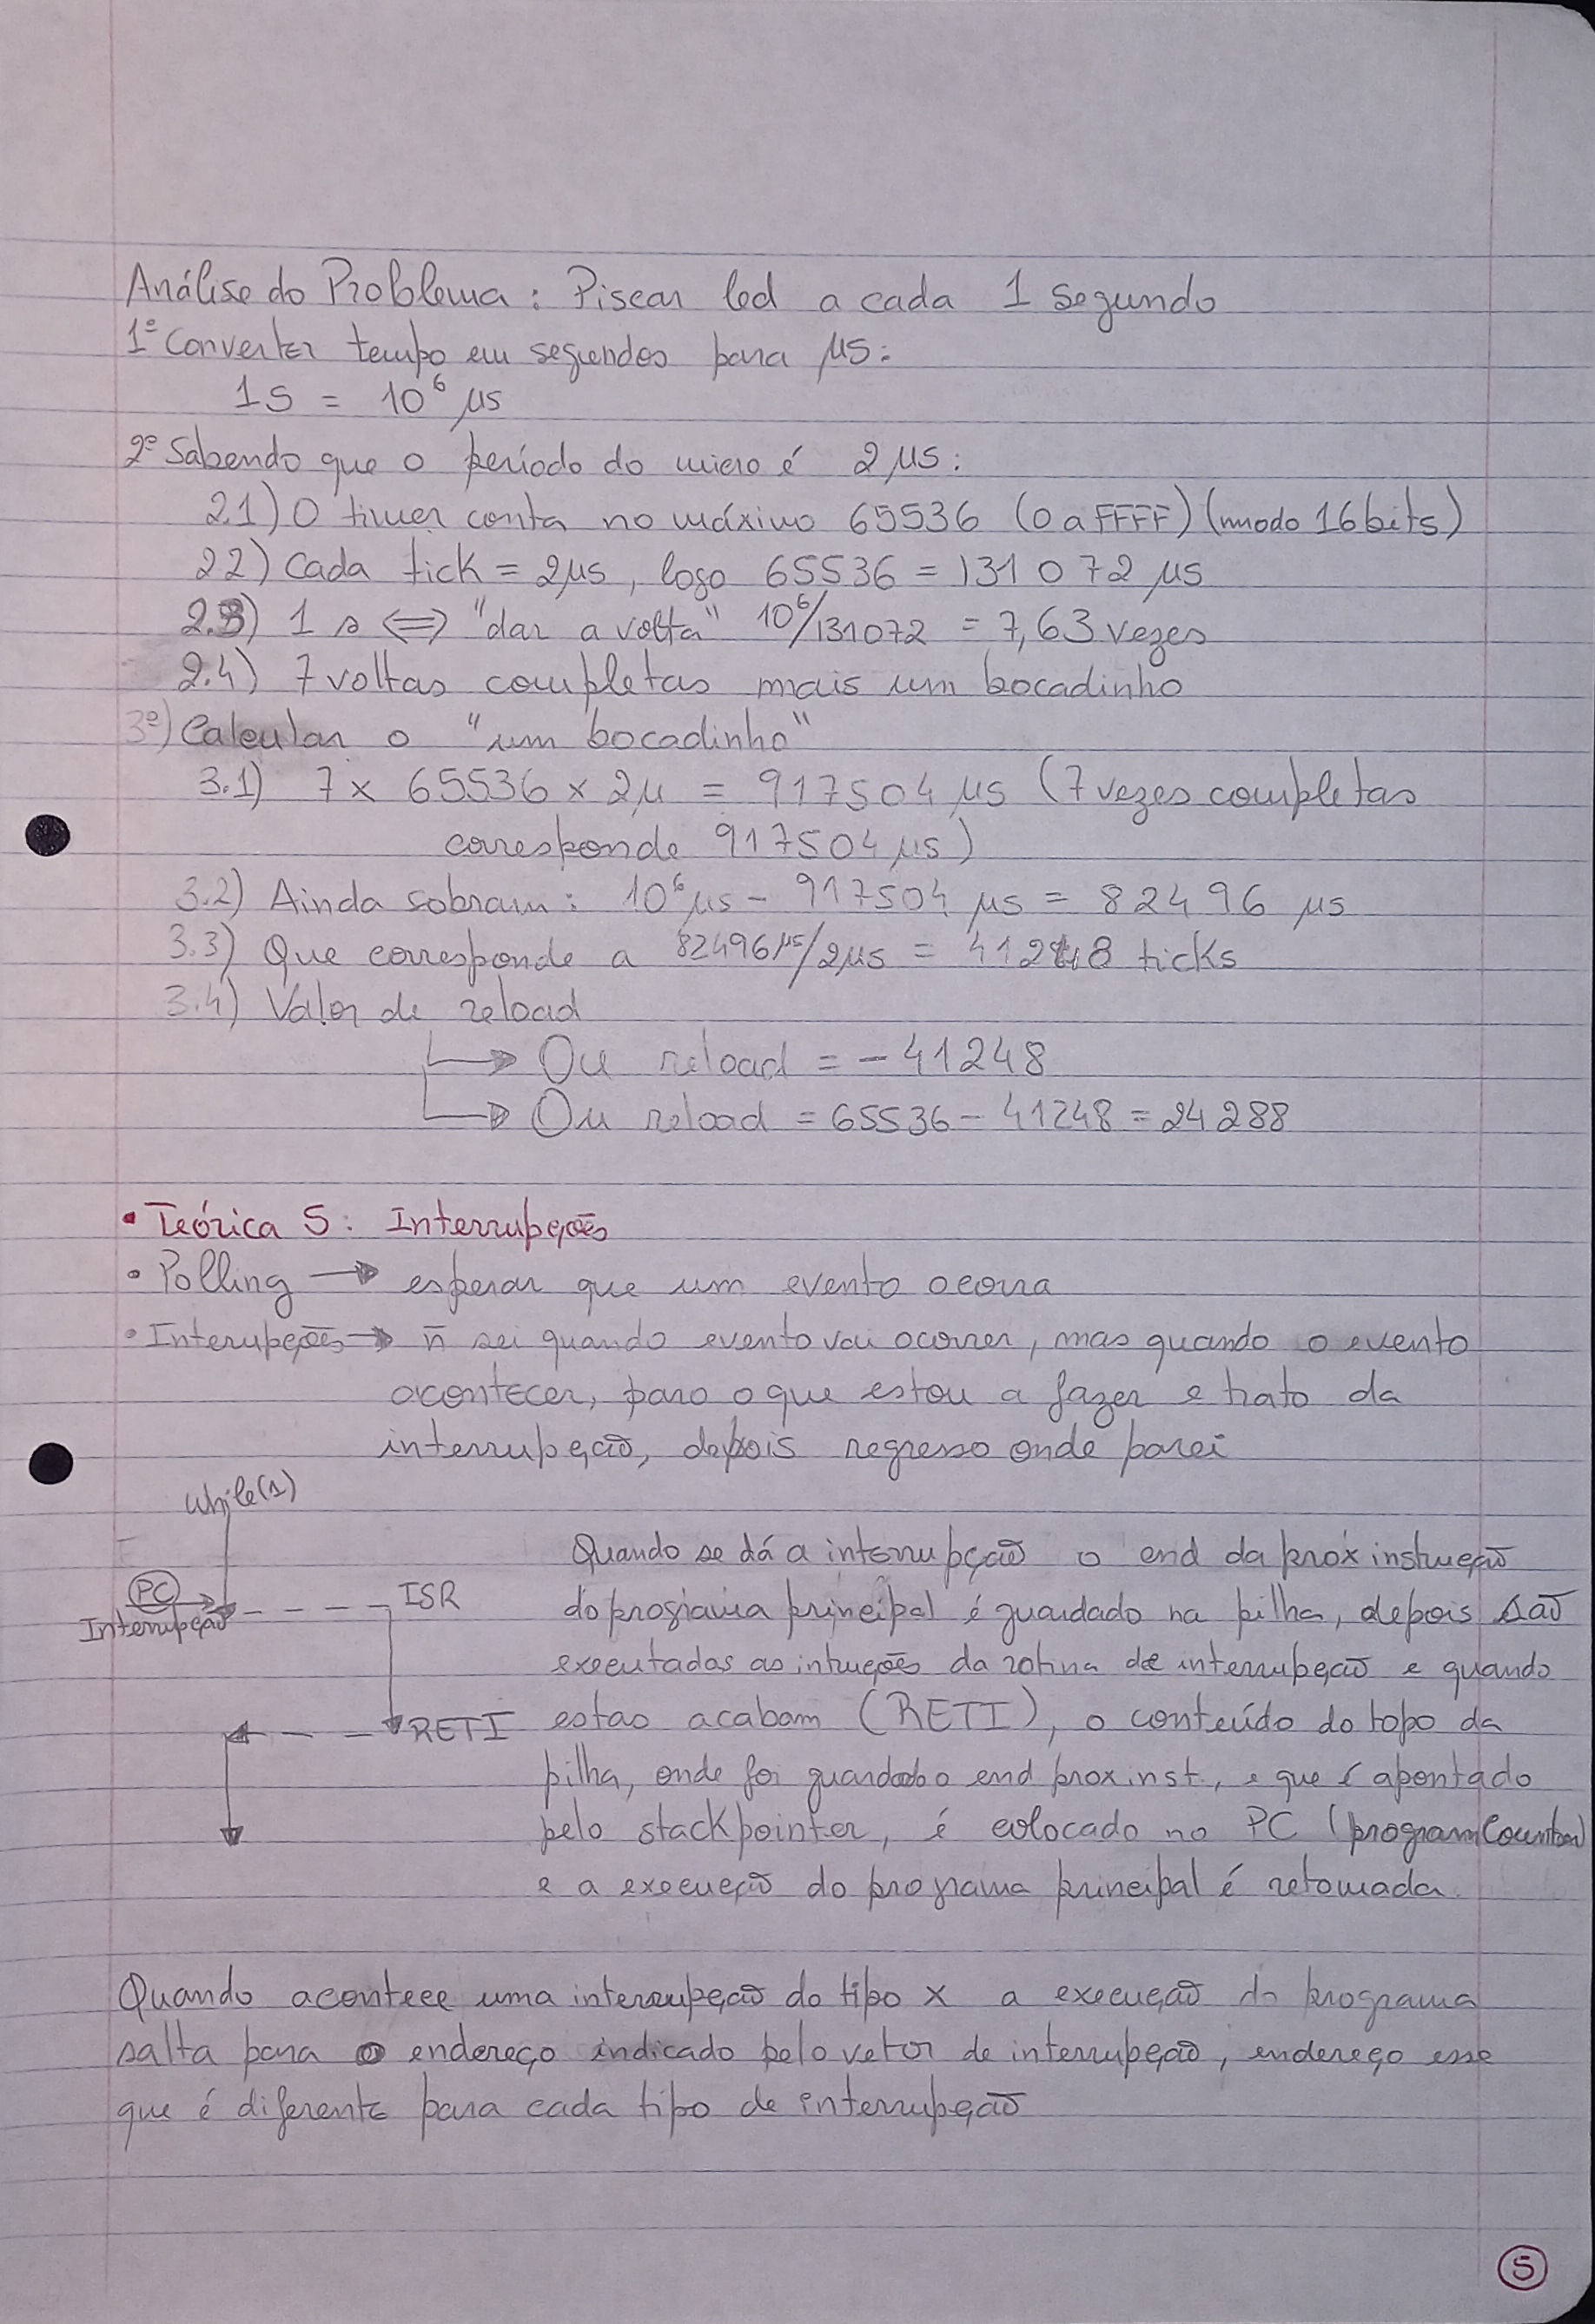 Análise do Problema: Piscar led a cada 1 segundo
1º Converter tempo em segundos para µs:
1s = 10⁶ µs
2º Sabendo que o período do micro é 2 µs:
2.1) O timer conta no máximo 65536 (0 a FFFF) (modo 16 bits)
2.2) Cada tick = 2µs, logo 65536 = 131 072 µs
2.3) 1 s ⇔ "dar a volta" 10⁶/131072 = 7,63 vezes
2.4) 7 voltas completas mais um bocadinho
3º) Calcular o "um bocadinho"
3.1) 7 x 65536 x 2µ = 917504 µs (7 vezes completas
corresponde 917504 µs)
3.2) Ainda sobram: 10⁶ µs - 917504 µs = 82496 µs
3.3) Que corresponde a 82496µs/2µs = 41248 ticks
3.4) Valor de reload
↳ Ou reload = - 41248
↳ Ou reload = 65536 - 41248 = 24288
• Teórica 5: Interrupções
• Polling → esperar que um evento ocorra
• Interupções → ñ sei quando evento vai ocorrer, mas quando o evento
acontecer, paro o que estou a fazer e trato da
interrupção, depois regresso onde parei
while(1)
PC
Interrupção
ISR
RETI
Quando se dá a interrupção o end da próx instrução
do programa principal é guardado na pilha, depois são
executadas as intruções da rotina de interrupção e quando
estas acabam (RETI), o conteúdo do topo da
pilha, onde foi guardado o end prox inst., e que é apontado
pelo stackpointer, é colocado no PC (program Counter)
e a execução do programa principal é retomada.
Quando acontece uma interrupção do tipo x a execução do programa
salta para o endereço indicado pelo vetor de interrupção, endereço esse
que é diferente para cada tipo de interrupção
5